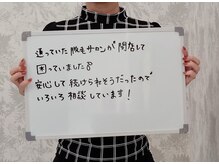 通っていた脱毛サロンが閉店して
困っていました
安心して続けられそうだったので
いろいろ相談しています！